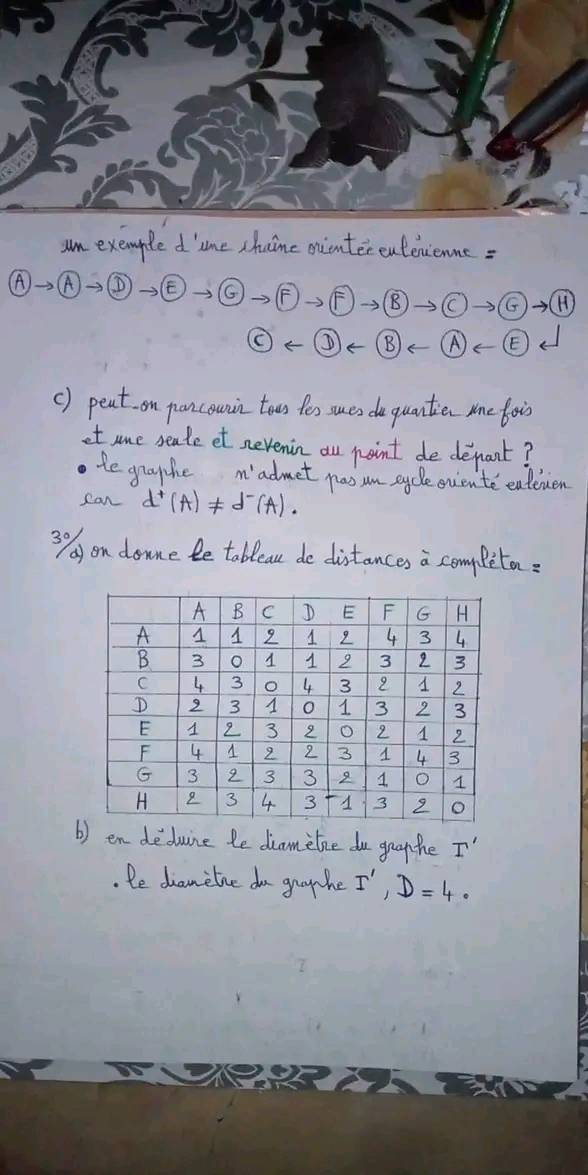 un exemple d'une chaîne orientée eulérienne =
A → A → D → E → G → F → F → B → C → G → H
C ← D ← B ← A ← E ↲
c) peut-on parcourir tous les rues du quartier une fois
et une seule et revenir au point de départ ?
• le graphe n'admet pas un cycle orienté eulérien
car d⁺(A) ≠ d⁻(A).
3°/a) on donne le tableau de distances à compléter =
A B C D E F G H
A 1 1 2 1 2 4 3 4
B 3 0 1 1 2 3 2 3
C 4 3 0 4 3 2 1 2
D 2 3 1 0 1 3 2 3
E 1 2 3 2 0 2 1 2
F 4 1 2 2 3 1 4 3
G 3 2 3 3 2 1 0 1
H 2 3 4 3 1 3 2 0
b) en déduire le diamètre du graphe I'
. le diamètre du graphe I', D = 4.